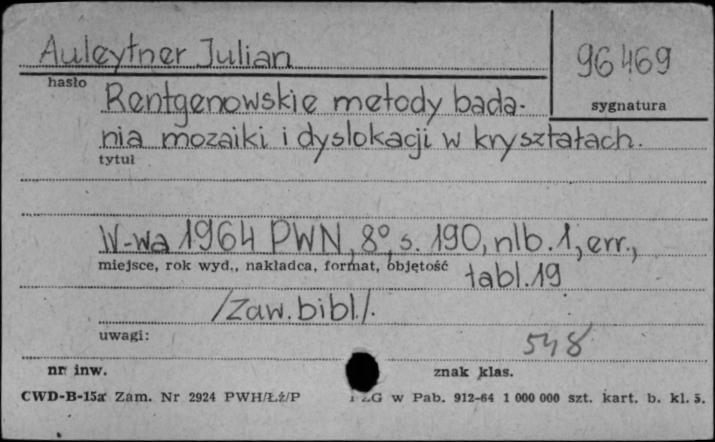 Auleytner Julian
96469
hasło
sygnatura
Rentgenowskie metody bada-
nia mozaiki i dyslokacji w kryształach.
tytuł
W-wa 1964 PWN, 8°, s. 190, nlb. 1, err.,
miejsce, rok wyd., nakładca, format, objętość
tabl. 19
/Zaw. bibl./.
uwagi:
548
nr inw.
znak klas.
CWD-B-15a Zam. Nr 2924 PWH/Łź/P
w Pab. 912-64 1 000 000 szt. kart. b. kl. 5.